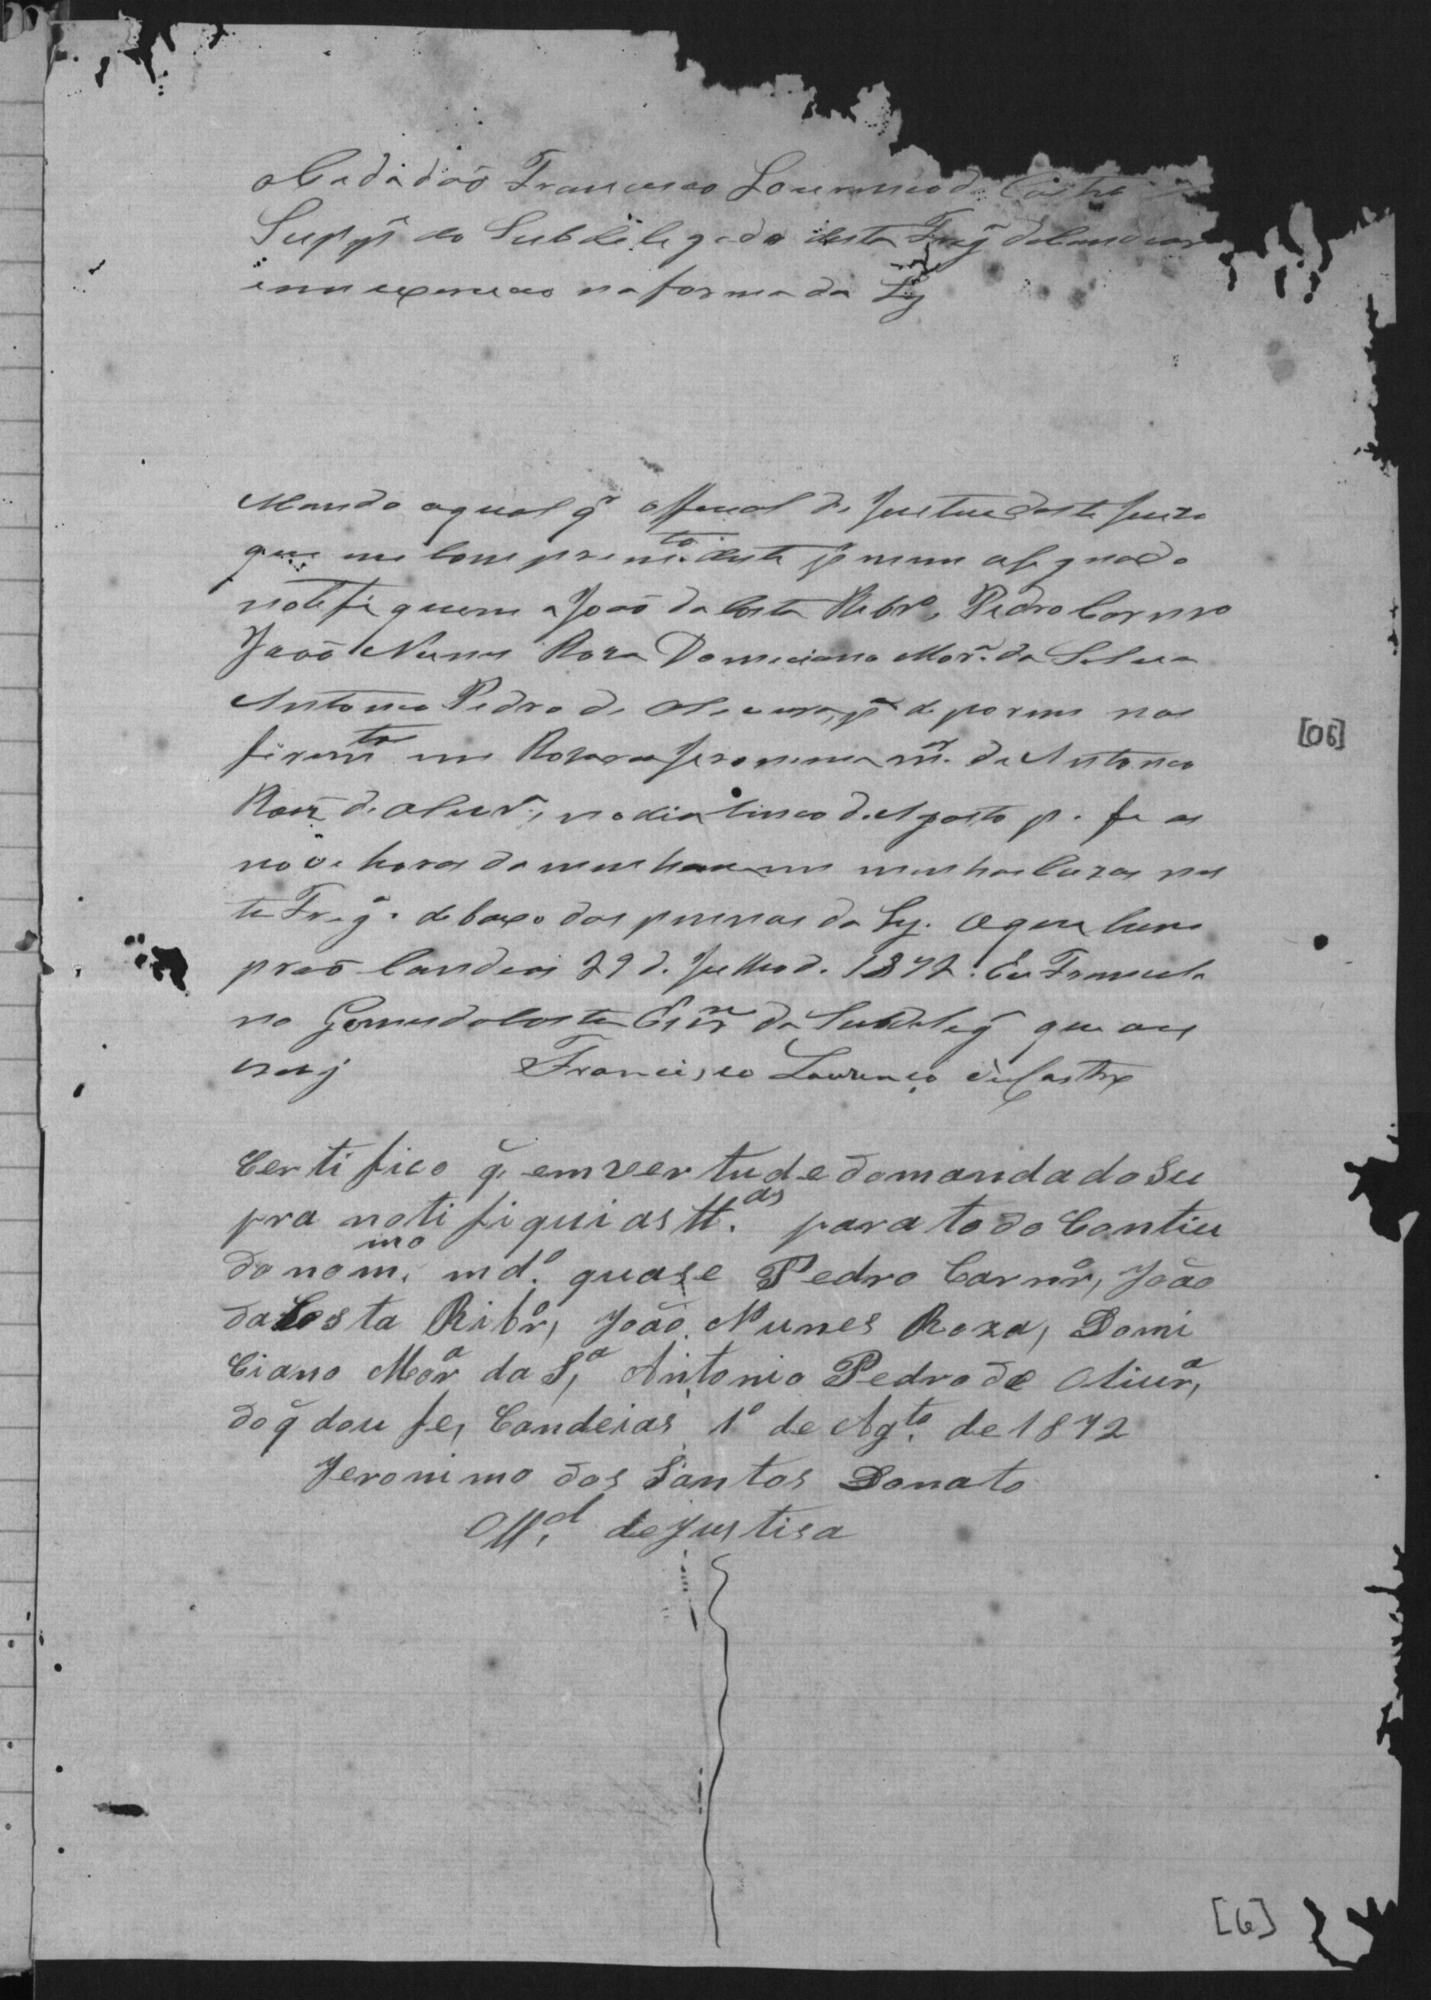 o Cidadaõ Francisco Lourenco de Castro
Supp.e do Subdelegado desta Freg.a de Candeias
em exercicio na forma da Ley
Mando a qual q.r official de Justica deste Juizo
que em comprim.to deste p mim asignado
notefiquem a Joaõ da Costa Ribr.o, Pedro Carnr.o
Joaõ Nunes Roza Domiciano Mor.a da Silva
Antonio Pedro de Oliveira, p.a deporem nos
firim.tos em Rozaria Jeronima m.er de Antonio
Roiz de Olivr.a, no dia cinco de Agosto p. f. as
nove horas da manhaa em minha caza nes
ta Freg.a debaixo das penas da Ley. O que cum
praõ Candeias 29 de Julho de 1872. Eu Franceli
no Gomes da Costa Escr.m da Subdeleg.a que o es
crevy Francisco Lourenço de Castro
Certifico q̃ em vertude do mandado Su
pra notifiqui as tt.as para todo Contiu
do no m.mo md.o quase Pedro Carnr.o, João
da Costa Ribr.o, João Nunes Roza, Domi
Ciano Mor.a da S.a, Antonio Pedro de Oliur.a,
do q̃ dou fe, Candeias, 1º de Ag.to de 1872
Jeronimo dos Santos Donato
Off.al de Justisa
[06]
[6]